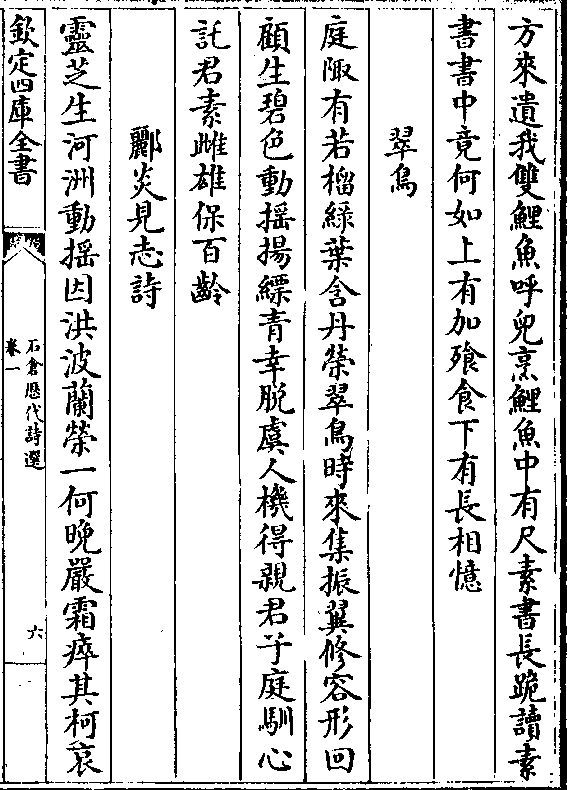 方來遺我雙鯉魚呼兒烹鯉魚中有尺素書長跪讀素
書書中竟何如上有加飱食下有長相憶
翠鳥
庭陬有若榴綠葉含丹榮翠鳥時來集振翼修容形回
顧生碧色動摇揚縹青幸脫虞人機得親君子庭馴心
託君素雌雄保百齡
酈炎見志詩
靈芝生河洲動摇因洪波蘭榮一何晚嚴霜瘁其柯哀
欽定四庫全書
石倉歷代詩選
卷一
六